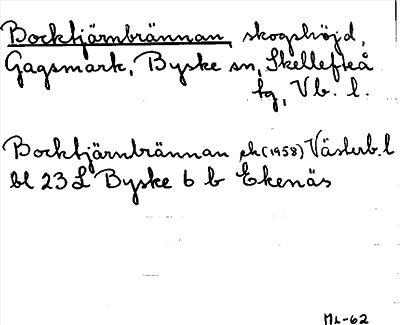 Bocktjärnbrännan, skogshöjd,
Gagsmark, Byske sn, Skellefteå
tg, Vb. l.
Bocktjärnbrännan, ek (1958) Västerb. l
bl 23 L Byske 6 b Ekenäs
-62